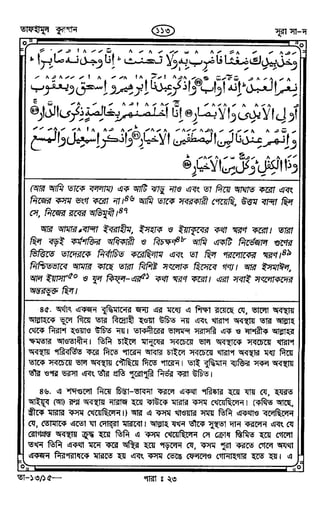 তাফহীমুল কুরআন
১১৩
সূরা সা-দ
وَخُذْ بِيَدِكَ ضِغْثًا فَاضْرِبْ بِّهِ وَلَا تَحْنَثْ ۗ إِنَّا وَجَدْنٰهُ صَابِرًا ۗ
نِعْمَ الْعَبْدُ ۗ إِنَّهٗ أَوَّابٌ ۝ وَاذْكُرْ عِبٰدَنَآ إِبْرٰهِيْمَ وَإِسْحٰقَ وَيَعْقُوْبَ
أُولِى الْأَيْدِىْ وَالْأَبْصَارِ ۝ إِنَّآ أَخْلَصْنٰهُمْ بِخَالِصَةٍ ذِكْرَى الدَّارِ ۝
وَإِنَّهُمْ عِنْدَنَا لَمِنَ الْمُصْطَفَيْنَ الْأَخْيَارِ ۝ وَاذْكُرْ إِسْمٰعِيْلَ وَالْيَسَعَ
وَذَا الْكِفْلِ ۗ وَكُلٌّ مِّنَ الْأَخْيَارِ ۝
(আর আমি তাকে বললাম) এক আটি ঝাড়ু নাও এবং তা দিয়ে আঘাত করো এবং
নিজের কসম ভংগ করো না।৪৬ আমি তাকে সবরকারী পেয়েছি, উত্তম বান্দা ছিল
সে, নিজের রবের অভিমুখী।৪৭
আর আমার বান্দা ইবরাহীম, ইসহাক ও ইয়াকূবের কথা স্মরণ করো। তারা
ছিল বড়ই কর্মশক্তির অধিকারী ও বিচক্ষণ৪৮ আমি একটি নির্ভেজাল গুণের
ভিত্তিতে তাদেরকে নির্বাচিত করেছিলাম এবং তা ছিল পরলোকের স্মরণ।৪৯
নিশ্চিতভাবে আমার কাছে তারা বিশিষ্ট সৎলোক হিসেবে গণ্য। আর ইসমাঈল,
আল ইয়াসা'৫০ ও যুল কিফ্‌ল-এর৫১ কথা স্মরণ করো। এরা সবাই সৎলোকদের
অন্তরভুক্ত ছিল।
৪৫. অর্থাৎ একজন বুদ্ধিমানের জন্য এর মধ্যে এ শিক্ষা রয়েছে যে, ভালো অবস্থায়
আল্লাহকে ভুলে গিয়ে তার বিদ্রোহী হওয়া উচিত নয় এবং খারাপ অবস্থায় তার আল্লাহ
থেকে নিরাশ হওয়াও উচিত নয়। তাকদীরের ভালমন্দ সরাসরি এক ও লাশরীক আল্লাহর
ক্ষমতার আওতাধীন। তিনি চাইলে মানুষের সবচেয়ে ভাল অবস্থাকে সবচেয়ে খারাপ
অবস্থায় পরিবর্তিত করে দিতে পারেন আবার চাইলে সবচেয়ে খারাপ অবস্থার মধ্য দিয়ে
তাকে সবচেয়ে ভাল অবস্থায় পৌঁছিয়ে দিতে পারেন। তাই বুদ্ধিমান ব্যক্তির সকল অবস্থায়
তাঁর ওপর ভরসা এবং তাঁর প্রতি পুরোপুরি নির্ভর করা উচিত।
৪৬. এ শব্দগুলো নিয়ে চিন্তা-ভাবনা করলে একথা পরিষ্কার হয়ে যায় যে, হযরত
আইয়ুব (আ) রুগ্ন অবস্থায় নারাজ হয়ে কাউকে মারার কসম খেয়েছিলেন। (কথিত আছে,
স্ত্রীকে মারার কসম খেয়েছিলেন।) আর এ কসম খাওয়ার সময় তিনি একথাও বলেছিলেন
যে, তোমাকে এতো ঘা দোররা মারবো। আল্লাহ যখন তাঁকে সুস্থতা দান করলেন এবং যে
রোগগ্রস্ত অবস্থায় ক্রুদ্ধ হয়ে তিনি এ কসম খেয়েছিলেন সে ক্রোধ স্তিমিত হয়ে গেলো
তখন তিনি একথা মনে করে অস্থির হয়ে পড়লেন যে, কসম পুরা করতে গেলে অযথা
একজন নিরপরাধকে মারতে হয় এবং কসম ভেঙে ফেললেও গোনাহগার হতে হয়। এ
তা-১৩/১৫—
পারা : ২৩